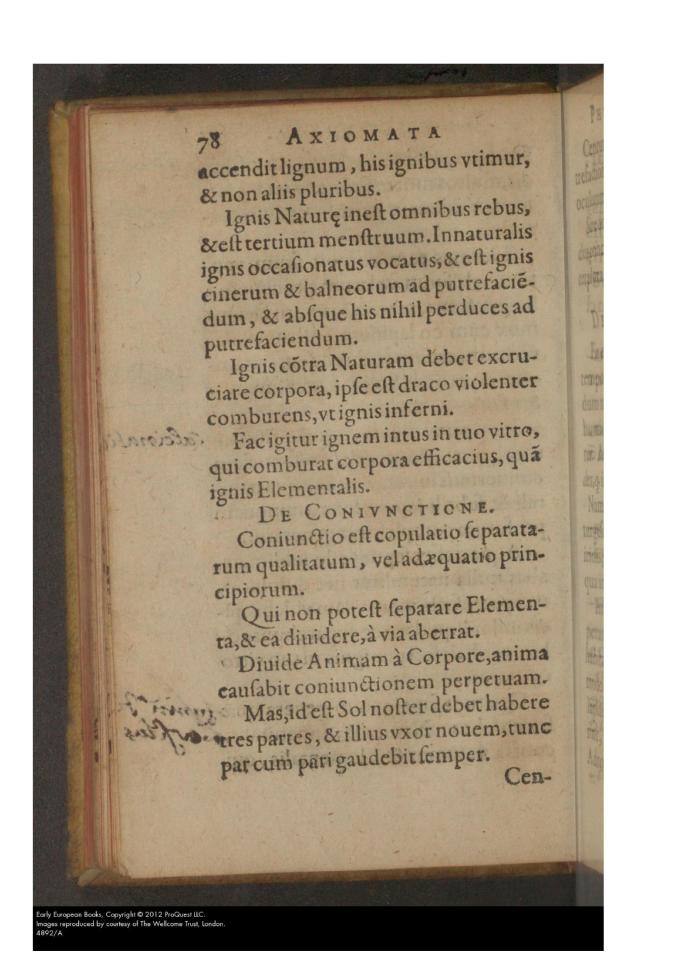 78 AXIOMATA
accendit lignum, his ignibus vtimur,
& non aliis pluribus.
Ignis Naturę inest omnibus rebus,
& est tertium menstruum. Innaturalis
ignis occaſionatus vocatus, & eſt ignis
cinerum & balneorum ad putrefaciē-
dum, & abſque his nihil perduces ad
putrefaciendum.
Ignis cōtra Naturam debet excru-
ciare corpora, ipſe eſt draco violenter
comburens, vt ignis inferni.
Fac igitur ignem intus in tuo vitro,
qui comburat corpora efficacius, quā
ignis Elementalis.
DE CONIVNCTIONE.
Coniunctio eſt copulatio ſeparata-
rum qualitatum, vel adæquatio prin-
cipiorum.
Qui non poteſt ſeparare Elemen-
ta, & ea diuidere, à via aberrat.
Diuide Animam à Corpore, anima
cauſabit coniunctionem perpetuam.
Mas, id eſt Sol noſter debet habere
tres partes, & illius vxor nouem, tunc
par cum pari gaudebit ſemper.
Cen-
Early European Books, Copyright © 2012 ProQuest LLC.
Images reproduced by courtesy of The Wellcome Trust, London.
4892/A